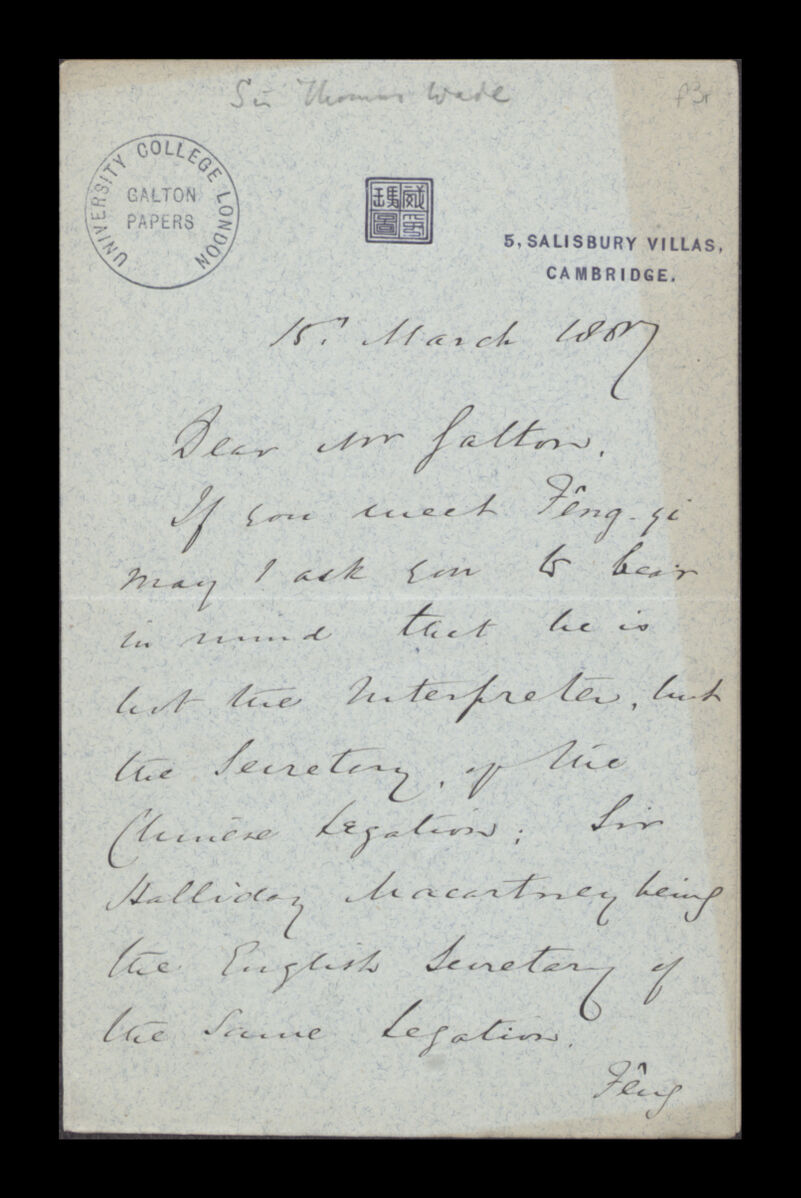 Sir Thomas Wade
UNIVERSITY COLLEGE LONDON
GALTON
PAPERS
威妥
瑪圖
5, SALISBURY VILLAS,
CAMBRIDGE.
15. March 1887
Dear Mr Galton.
If you meet Fêng-yi
may I ask you to bear
in mind that he is
not the Interpreter, but
the Secretary, of the
Chinese Legation; Sir
Halliday Macartney being
the English Secretary of
the same Legation.
Fêng